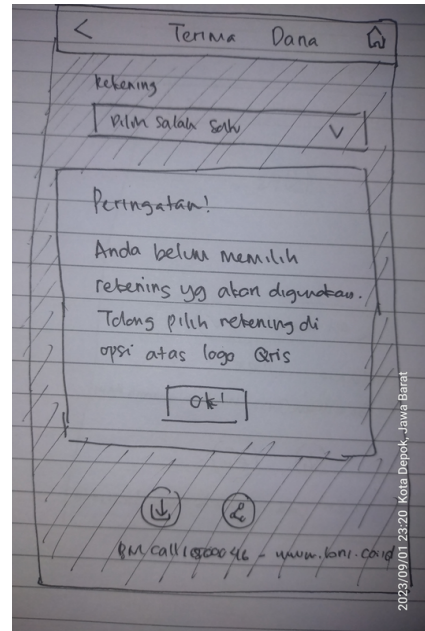 < Terima Dana
Rekening
Pilih salah satu
Peringatan!
Anda belum memilih
rekening yg akan digunakan.
Tolong pilih rekening di
opsi atas logo Qris
Ok!
BNI call - www.bni.co.id
2023/09/01 23:20 Kota Depok, Jawa Barat